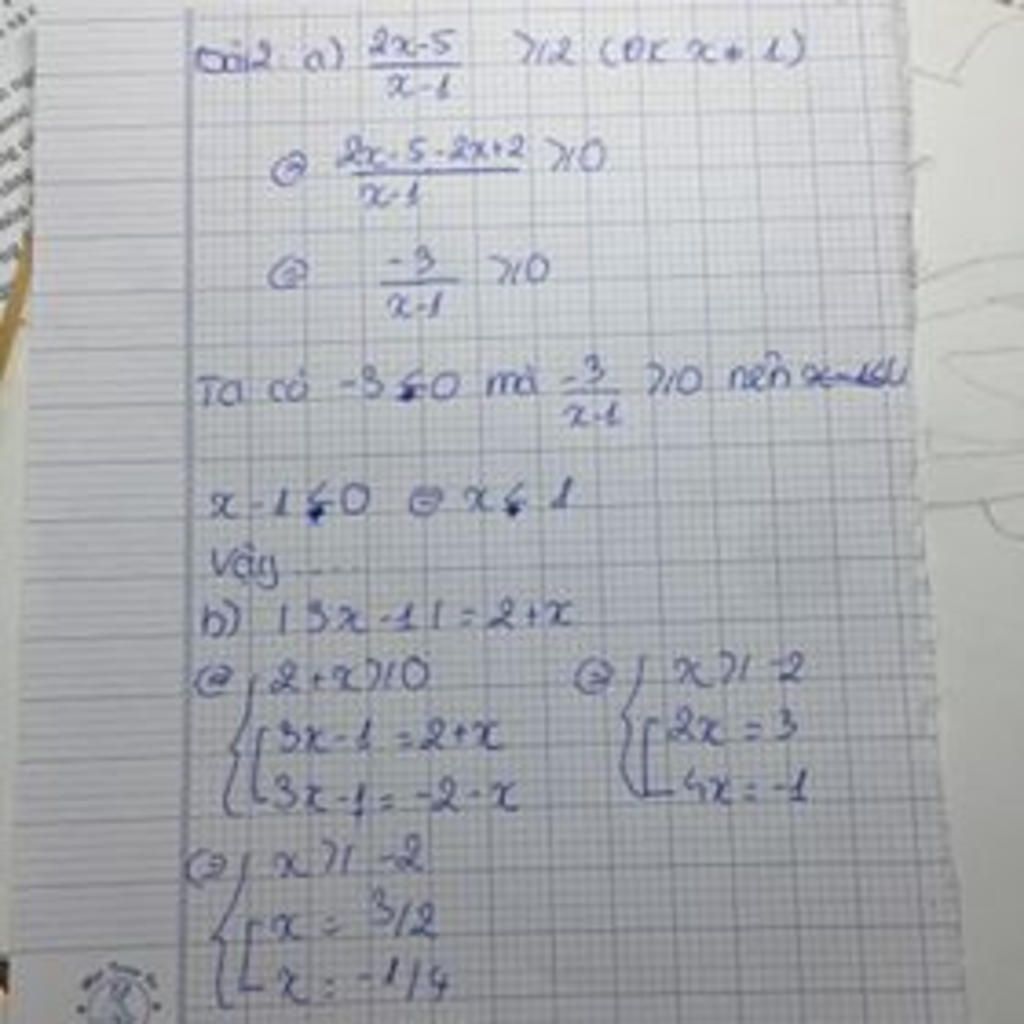 Bài 2 a) (2x-5)/(x-1) ≥ 2 (ĐK x ≠ 1)
⇔ (2x-5-2x+2)/(x-1) ≥ 0
⇔ -3/(x-1) ≥ 0
Ta có -3 < 0 mà -3/(x-1) ≥ 0 nên
x-1 < 0 ⇔ x < 1
Vậy .....
b) |3x-1| = 2+x
⇔ { 2+x ≥ 0 [ 3x-1 = 2+x 3x-1 = -2-x ⇔ { x ≥ -2 [ 2x = 3 4x = -1
⇔ { x ≥ -2
[ x = 3/2
x = -1/4